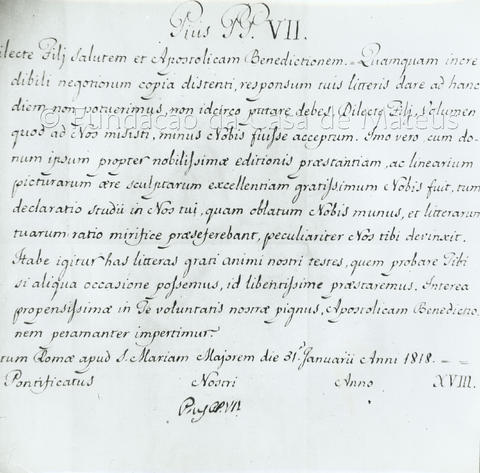 Pius PP. VII.
ilecte Filj salutem et Apostolicam Benedictionem. Quamquam incre
dibili negotiorum copia distenti, responsum tuis litteris dare ad hanc
diem non potuerimus, non idcirco putare debes Dilecte Filj, volumen
quod ad Nos misisti, minus Nobis fuisse acceptum. Imo vero, cum do-
num ipsum propter nobilissimæ editionis præstantiam, ac linearium
picturarum ære sculptarum excellentiam gratissimum Nobis fuit, tum
declaratio studii in Nos tuj, quam oblatum Nobis munus, et litterarum
tuarum ratio mirifice præseferebant, peculiariter Nos tibi devinxit.
Habe igitur has litteras grati animi nostri testes, quem probare Tibi
si aliqua occasione possemus, id libentissime præstaremus. Interea
propensissimæ in Te voluntatis nostræ pignus, Apostolicam Benedictio
nem peramanter impertimur.
tum Romæ apud S. Mariam Majorem die 31. Januarii Anni 1818. - -
Pontificatus Nostri Anno XVIII.
Pius PP. VII
© Fundação da Casa de Mateus